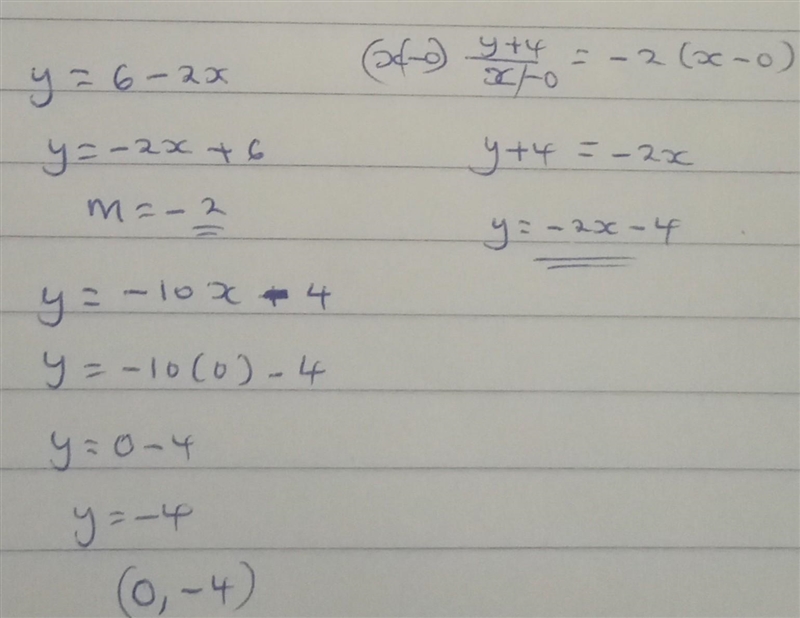 y = 6 - 2x
y = -2x + 6
m = -2
y = -10x - 4
y = -10(0) - 4
y = 0 - 4
y = -4
(0, -4)
(x-0) y+4/x-0 = -2(x-0)
y+4 = -2x
y = -2x - 4